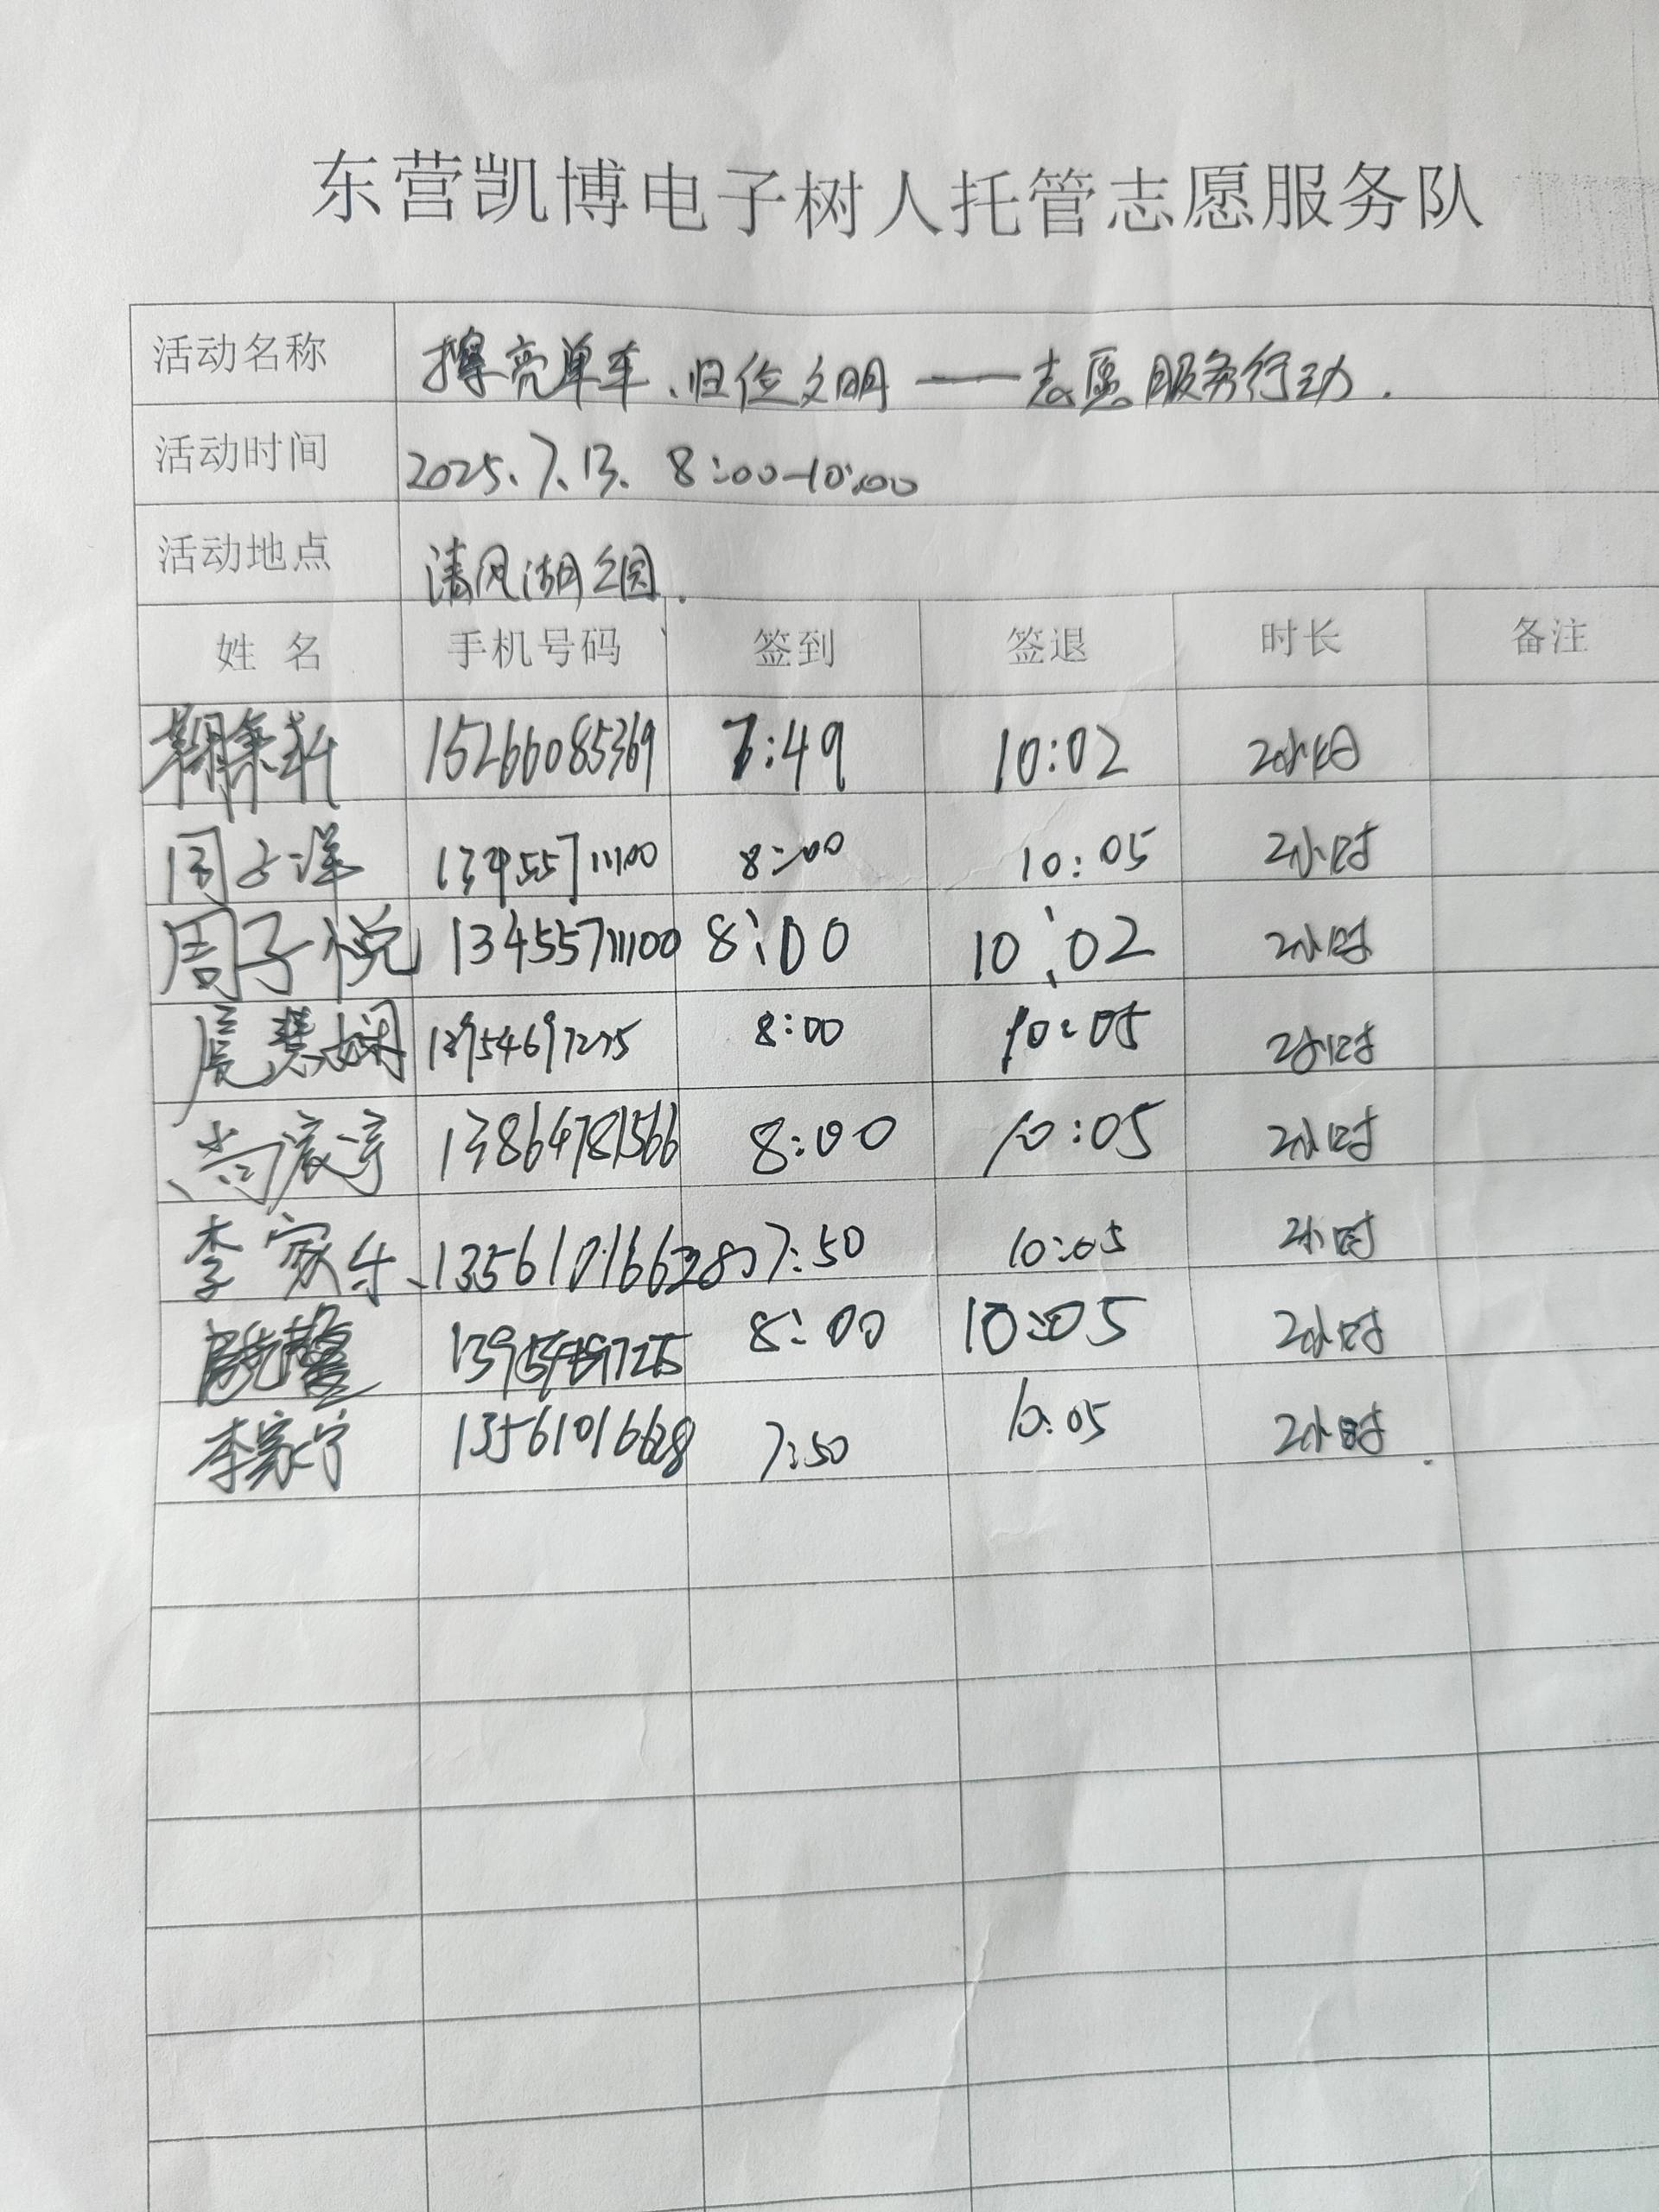 东营凯博电子树人托管志愿服务队
活动名称 擦亮单车、归位文明——志愿服务行动.
活动时间 2025.7.13. 8:00-10:00
活动地点 清风湖公园.
姓 名 手机号码 签到 签退 时长 备注
15266085369 7:49 10:02 2小时
周子洋 13455711100 8:00 10:05 2小时
周子悦 13455711100 8:00 10:02 2小时
8:00 10:05 2小时
尚宸宇 13864781566 8:00 10:05 2小时
李家乐 7:50 10:05 2小时
8:00 10:05 2小时
李家宁 13561016628 7:50 10:05 2小时